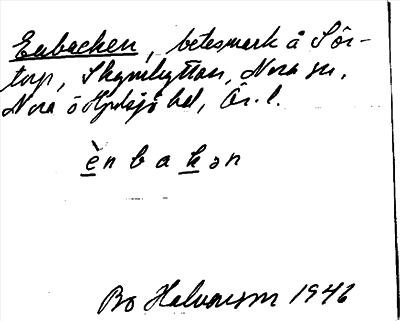 Enbacken, betesmark å Sör-
torp, Skymhyttan, Nora sn,
Nora o Hjulsjö bd, Ör. l.
ènbakən
Bo Halvarson 1946